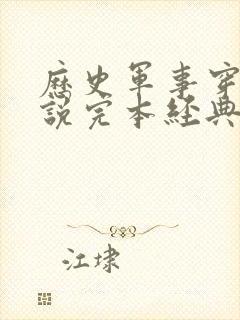 歷史軍事穿
説完本經典
江埭